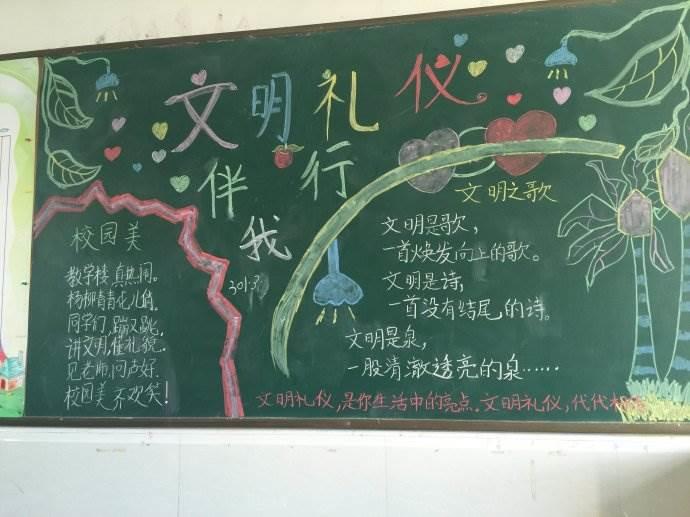 文明礼仪
伴我行
301.3
校园美
教学楼真热闹。
杨柳青青花儿俏。
同学们,蹦又跳,
讲文明,懂礼貌。
见老师,问声好.
校园美 齐欢笑!
文明之歌
文明是歌,
一首焕发向上的歌。
文明是诗,
一首没有结尾的诗。
文明是泉,
一股清澈透亮的泉……
文明礼仪,是你生活中的亮点.文明礼仪,代代相